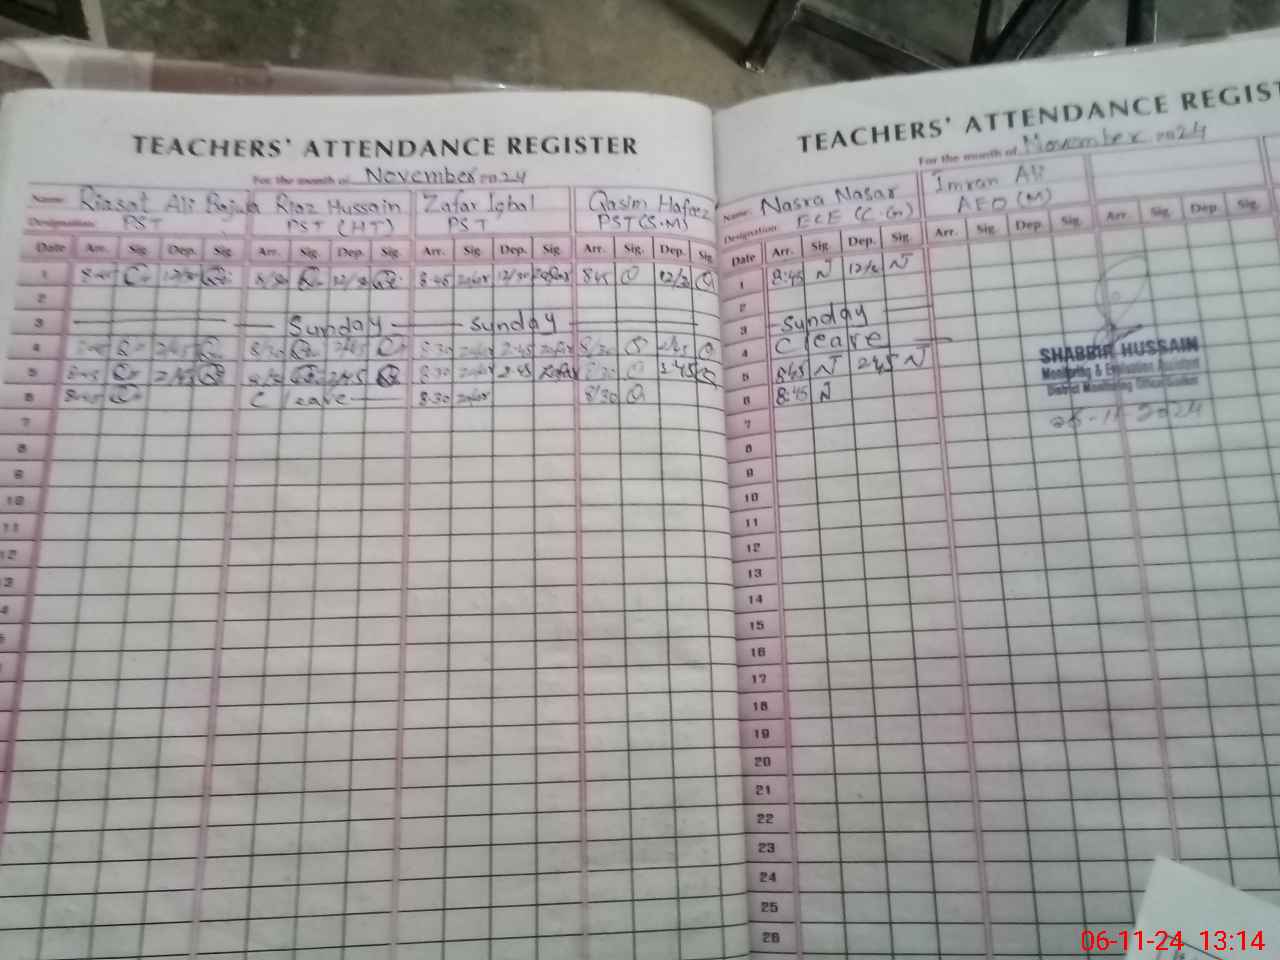 TEACHERS' ATTENDANCE REGISTER
For the month of November 2024
Name: Riasat Ali Bajwa Riaz Hussain Zafar Iqbal Qasim Hafeez
Designation: PST PST (HT) PST PST (S.M)
Date Arr. Sig. Dep. Sig. Arr. Sig. Dep. Sig. Arr. Sig. Dep. Sig. Arr. Sig. Dep. Sig.
1 8:45 zafar 12/30 zafar 8:45 12/30
2
3 Sunday Sunday
4 2/45 8/30 2/45 8:30 zafar 2:45 zafar 8/30 2/45
5 2/45 2/45 8:30 zafar 2:45 zafar 8:30 2:45
6 C leave 8:30 zafar 8/30
7
8
9
10
11
12
13
TEACHERS' ATTENDANCE REGIST
For the month of November 2024
Name: Nasra Nasar Imran Ali
Designation: ECE (C.G) AEO (M)
Date Arr. Sig. Dep. Sig. Arr. Sig. Dep. Sig. Arr. Sig. Dep. Sig.
1 8:45 N N
2
3 Sunday
4 C leave
5 8:45 N 2:45 N
6 8:45 N
7
8
9
10
11
12
13
14
15
16
17
18
19
20
21
22
23
24
25
26
SHABBIR HUSSAIN
Monitoring & Evaluation Assistant
District Monitoring Officer
11-2024
06-11-24 13:14